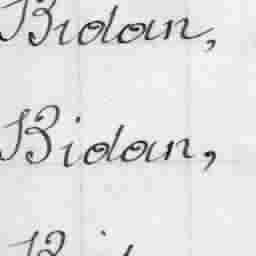 Bidan,
Bidan,